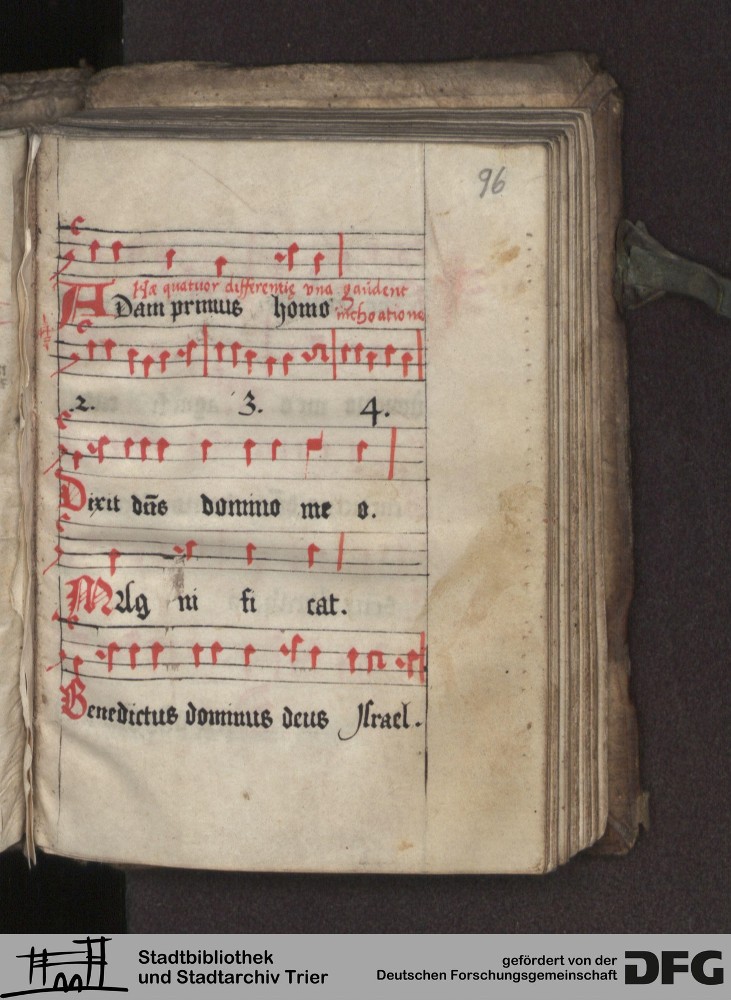 96
Hæ quatuor differentię vna gaudent
ADam primus homo inchoatione
.2. 3. 4.
Dixit dñs domino me o.
MAg ni fi cat.
Benedictus dominus deus Israel.
Stadtbibliothek
und Stadtarchiv Trier
gefördert von der
Deutschen Forschungsgemeinschaft
DFG